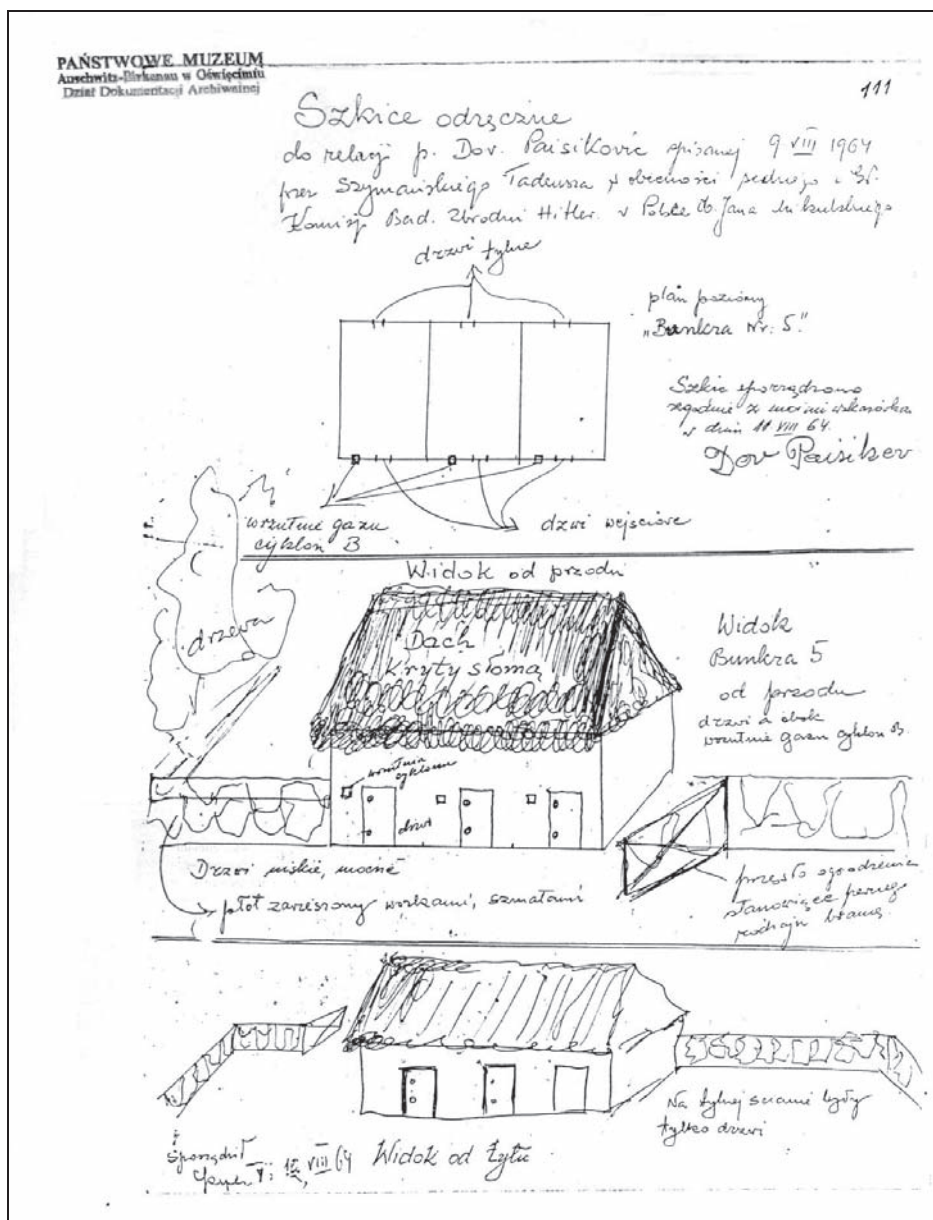 PAŃSTWOWE MUZEUM
Auschwitz-Birkenau w Oświęcimiu
Dział Dokumentacji Archiwalnej
111
Szkice odręczne
do relacji p. Dov. Paisikovic spisanej 9 VIII 1964
przez Szymańskiego Tadeusza w obecności sędziego
Komisji Bad. Zbrodni Hitler. w Polsce Jana Mikulskiego
drzwi tylne
plan poziomy
„Bunkra Nr: 5."
Szkic sporządzono
zgodnie z moimi wskazówkami
w dniu 11 VIII 64.
Dov Paisikov
wrzutnie gazu
cyklon B
drzwi wejściowe
Widok od przodu
drzewa
Dach
Kryty słomą
Widok
Bunkra 5
od przodu
drzwi a obok
wrzutnie gazu cyklon B.
wrzutnia
cyklonu
drzwi
Drzwi niskie, mocne
płot zawieszony workami, szmatami
przęsło ogrodzenia
stanowiące pewnego
rodzaju bramę
Na tylnej ścianie były
tylko drzwi
Sporządził
VIII 64
Widok od tyłu